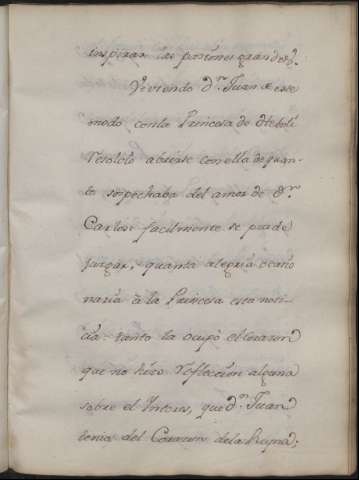 inspirar las pasiones grandes.
Viviendo Dn. Juan de este
modo con la Princesa de Eboli
resolvio abrirse con ella de quan-
to sospechaba del amor de Dn.
Carlos facilmente se puede
juzgar, quanta alegria ocasio
naria à la Princesa esta noti-
cia: tanto la ocupò el corazon
que no hizo reflecion alguna
sobre el Interes, que Dn. Juan
tenia del Corazon de la Reyna;